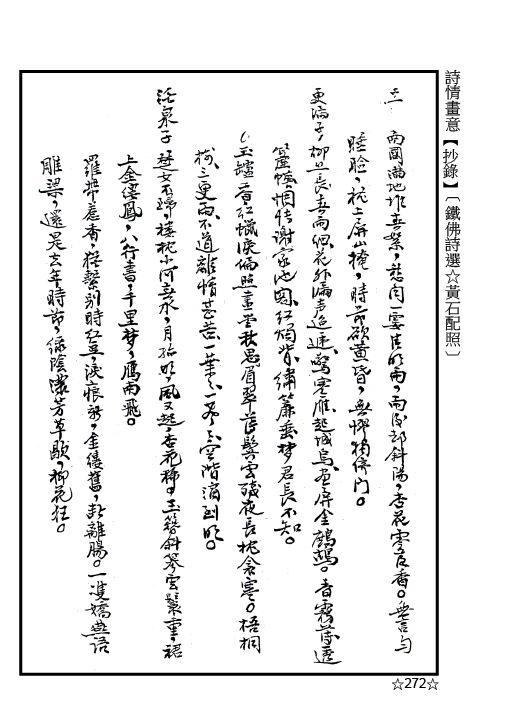 詩情畫意【抄錄】〔鐵佛詩選☆黃石配照〕
南園滿地堆輕絮,愁聞一霎清明雨,雨後卻斜陽,杏花零落香。無言勻
睡臉,枕上屏山掩,時節欲黃昏,無憀獨倚門。
更漏子,柳絲長春雨細,花外漏聲迢遞,驚塞雁起城烏,畫屏金鷓鴣。香霧薄透
簾幙,惆悵謝家池閣,紅燭背,繡簾垂夢君長不知。
玉爐香,紅蠟淚偏照畫堂秋思眉翠薄鬢雲殘夜長枕衾寒。梧桐
樹、三更雨,不道離情甚苦、一葉々、一聲々,空階滴到明。
酒泉子 楚女不歸,樓枕小河春水,月孤明,風又起,杏花稀。玉簪斜篸雲鬟重,裙
上金縷鳳,八行書,千里夢,雁南飛。
羅帶惹香,猶繫別時紅豆,淚痕新,金縷舊,斷離腸。一雙嬌燕語
雕梁,還是去年時節,綠陰濃芳草歇,柳花狂。
☆272☆